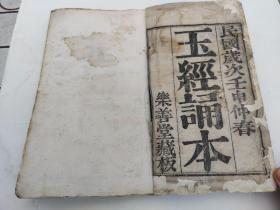 民國歲次壬申仲春
玉經誦本
樂善堂藏板